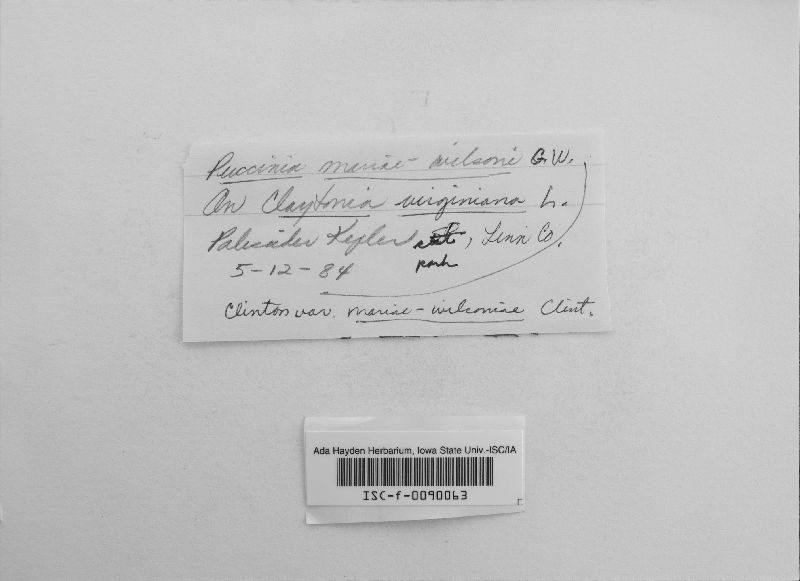 Puccinia mariae-wilsoni G.W.
On Claytonia virginiana L.
Palisades Kepler state, Linn Co.
park
5-12-84
Clinton var. mariae-wilsoniae Clint.
Ada Hayden Herbarium, Iowa State Univ.-ISC/IA
ISC-f-0090063